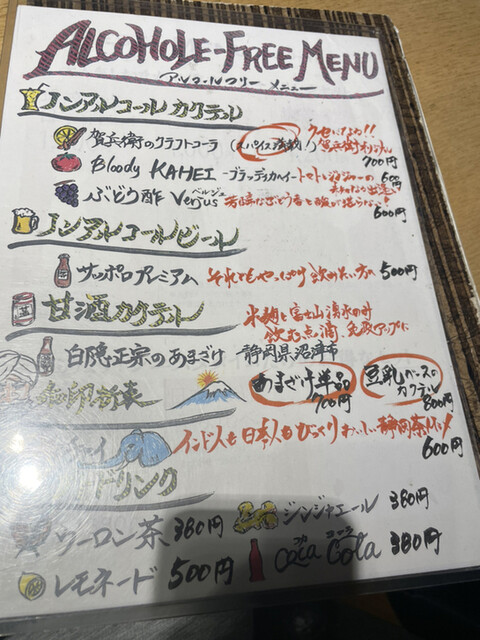 ALCOHOLE-FREE MENU
アルコールフリー メニュー
ノンアルコールカクテル
賀兵衛のクラフトコーラ (スパイス強めっ!) クセになる!!
700円
Bloody KAHEI -ブラッディカヘイー トマトとジンジャーの
600円
ぶどう酢 Verjus ベルジュ
600円
ノンアルコールビール
サッポロプレミアム それでもやっぱり飲みたい方の 500円
甘酒カクテル 米麹と富士山湧水の
飲む点滴 免疫アップに
白隠正宗のあまざけ 静岡県沼津市
あまざけ単品 700円
豆乳ベースのカクテル 800円
インド人も日本人もびっくり おいしい静岡茶
600円
ドリンク
ウーロン茶 380円 ジンジャエール 380円
レモネード 500円 Coca Cola コカ コーラ 380円